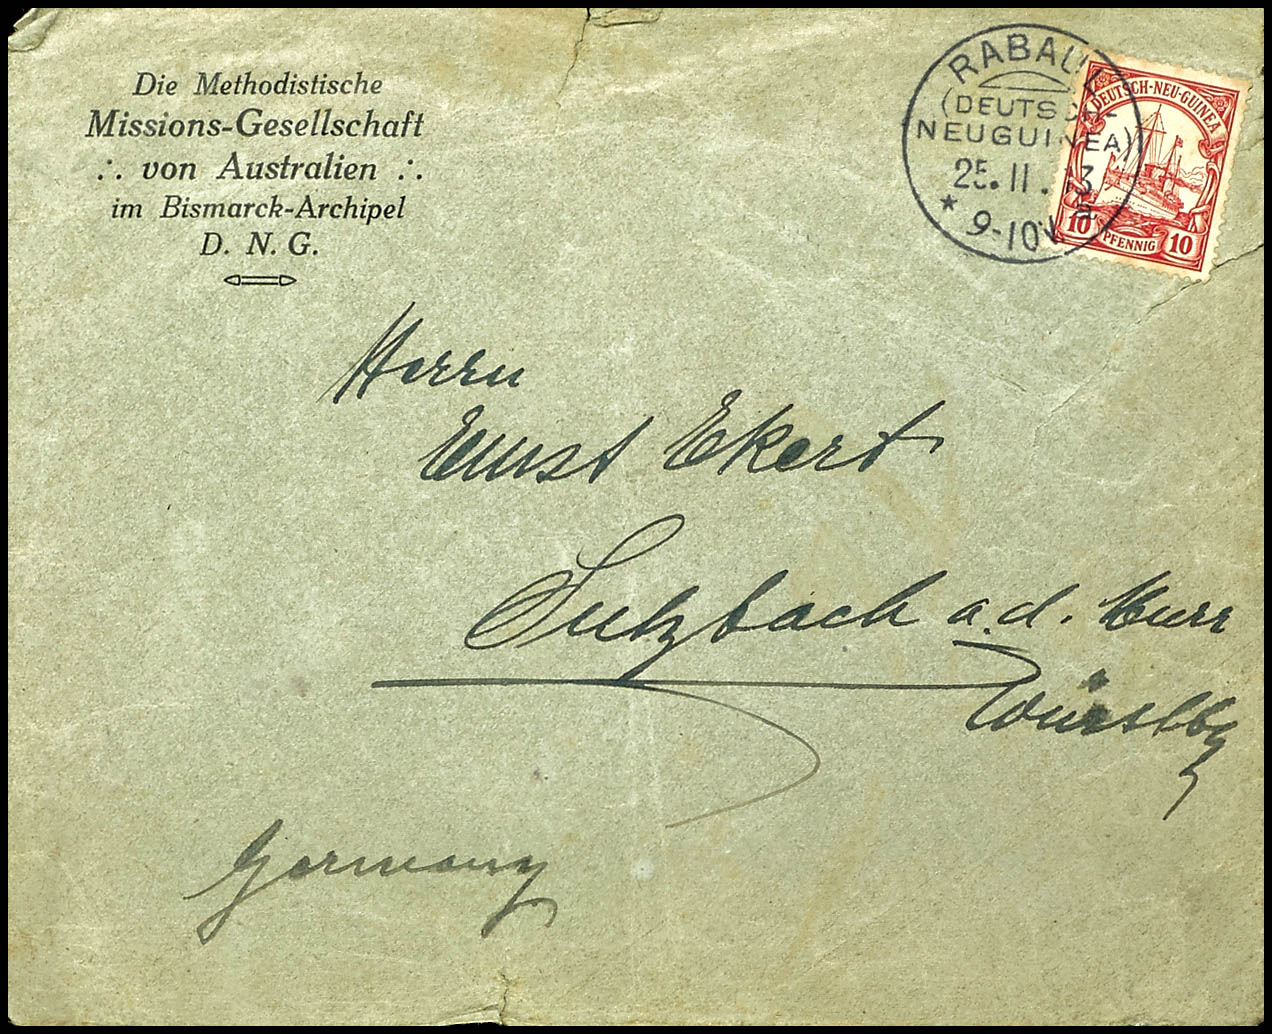 Die Methodistische
Missions-Gesellschaft
∴ von Australien ∴
im Bismarck-Archipel
D. N. G.
RABAUL
(DEUTSCH-
NEUGUINEA)
25.11.13
* 9-10V a
DEUTSCH-NEU-GUINEA
10 PFENNIG 10
Herrn
Ernst Ekert
Sulzbach a.d. Murr
Württbg
Germany